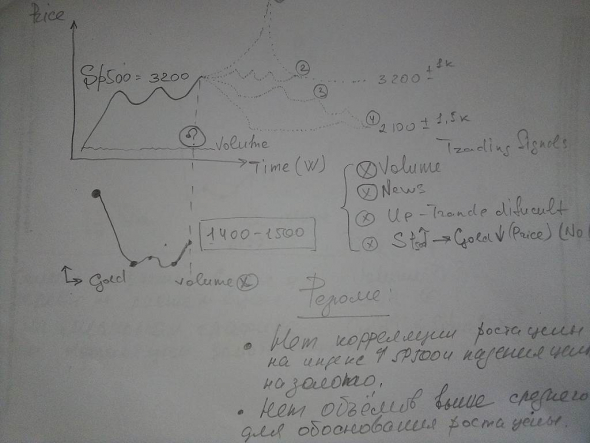 Price
Sp500 = 3200
②
3200 ± 1k
③
④
2100 ± 1,1k
Volume
Time (W)
Trading Signals
Volume
News
Up-Trande dificult
→ Gold ↓ (Price) (No
1400-1500
Gold
volume
Резюме:
• Нет корреляции роста цены
на индекс ↑ SP500 и падения цены
на золото.
• Нет объёмов выше среднего
для обоснования роста цены.